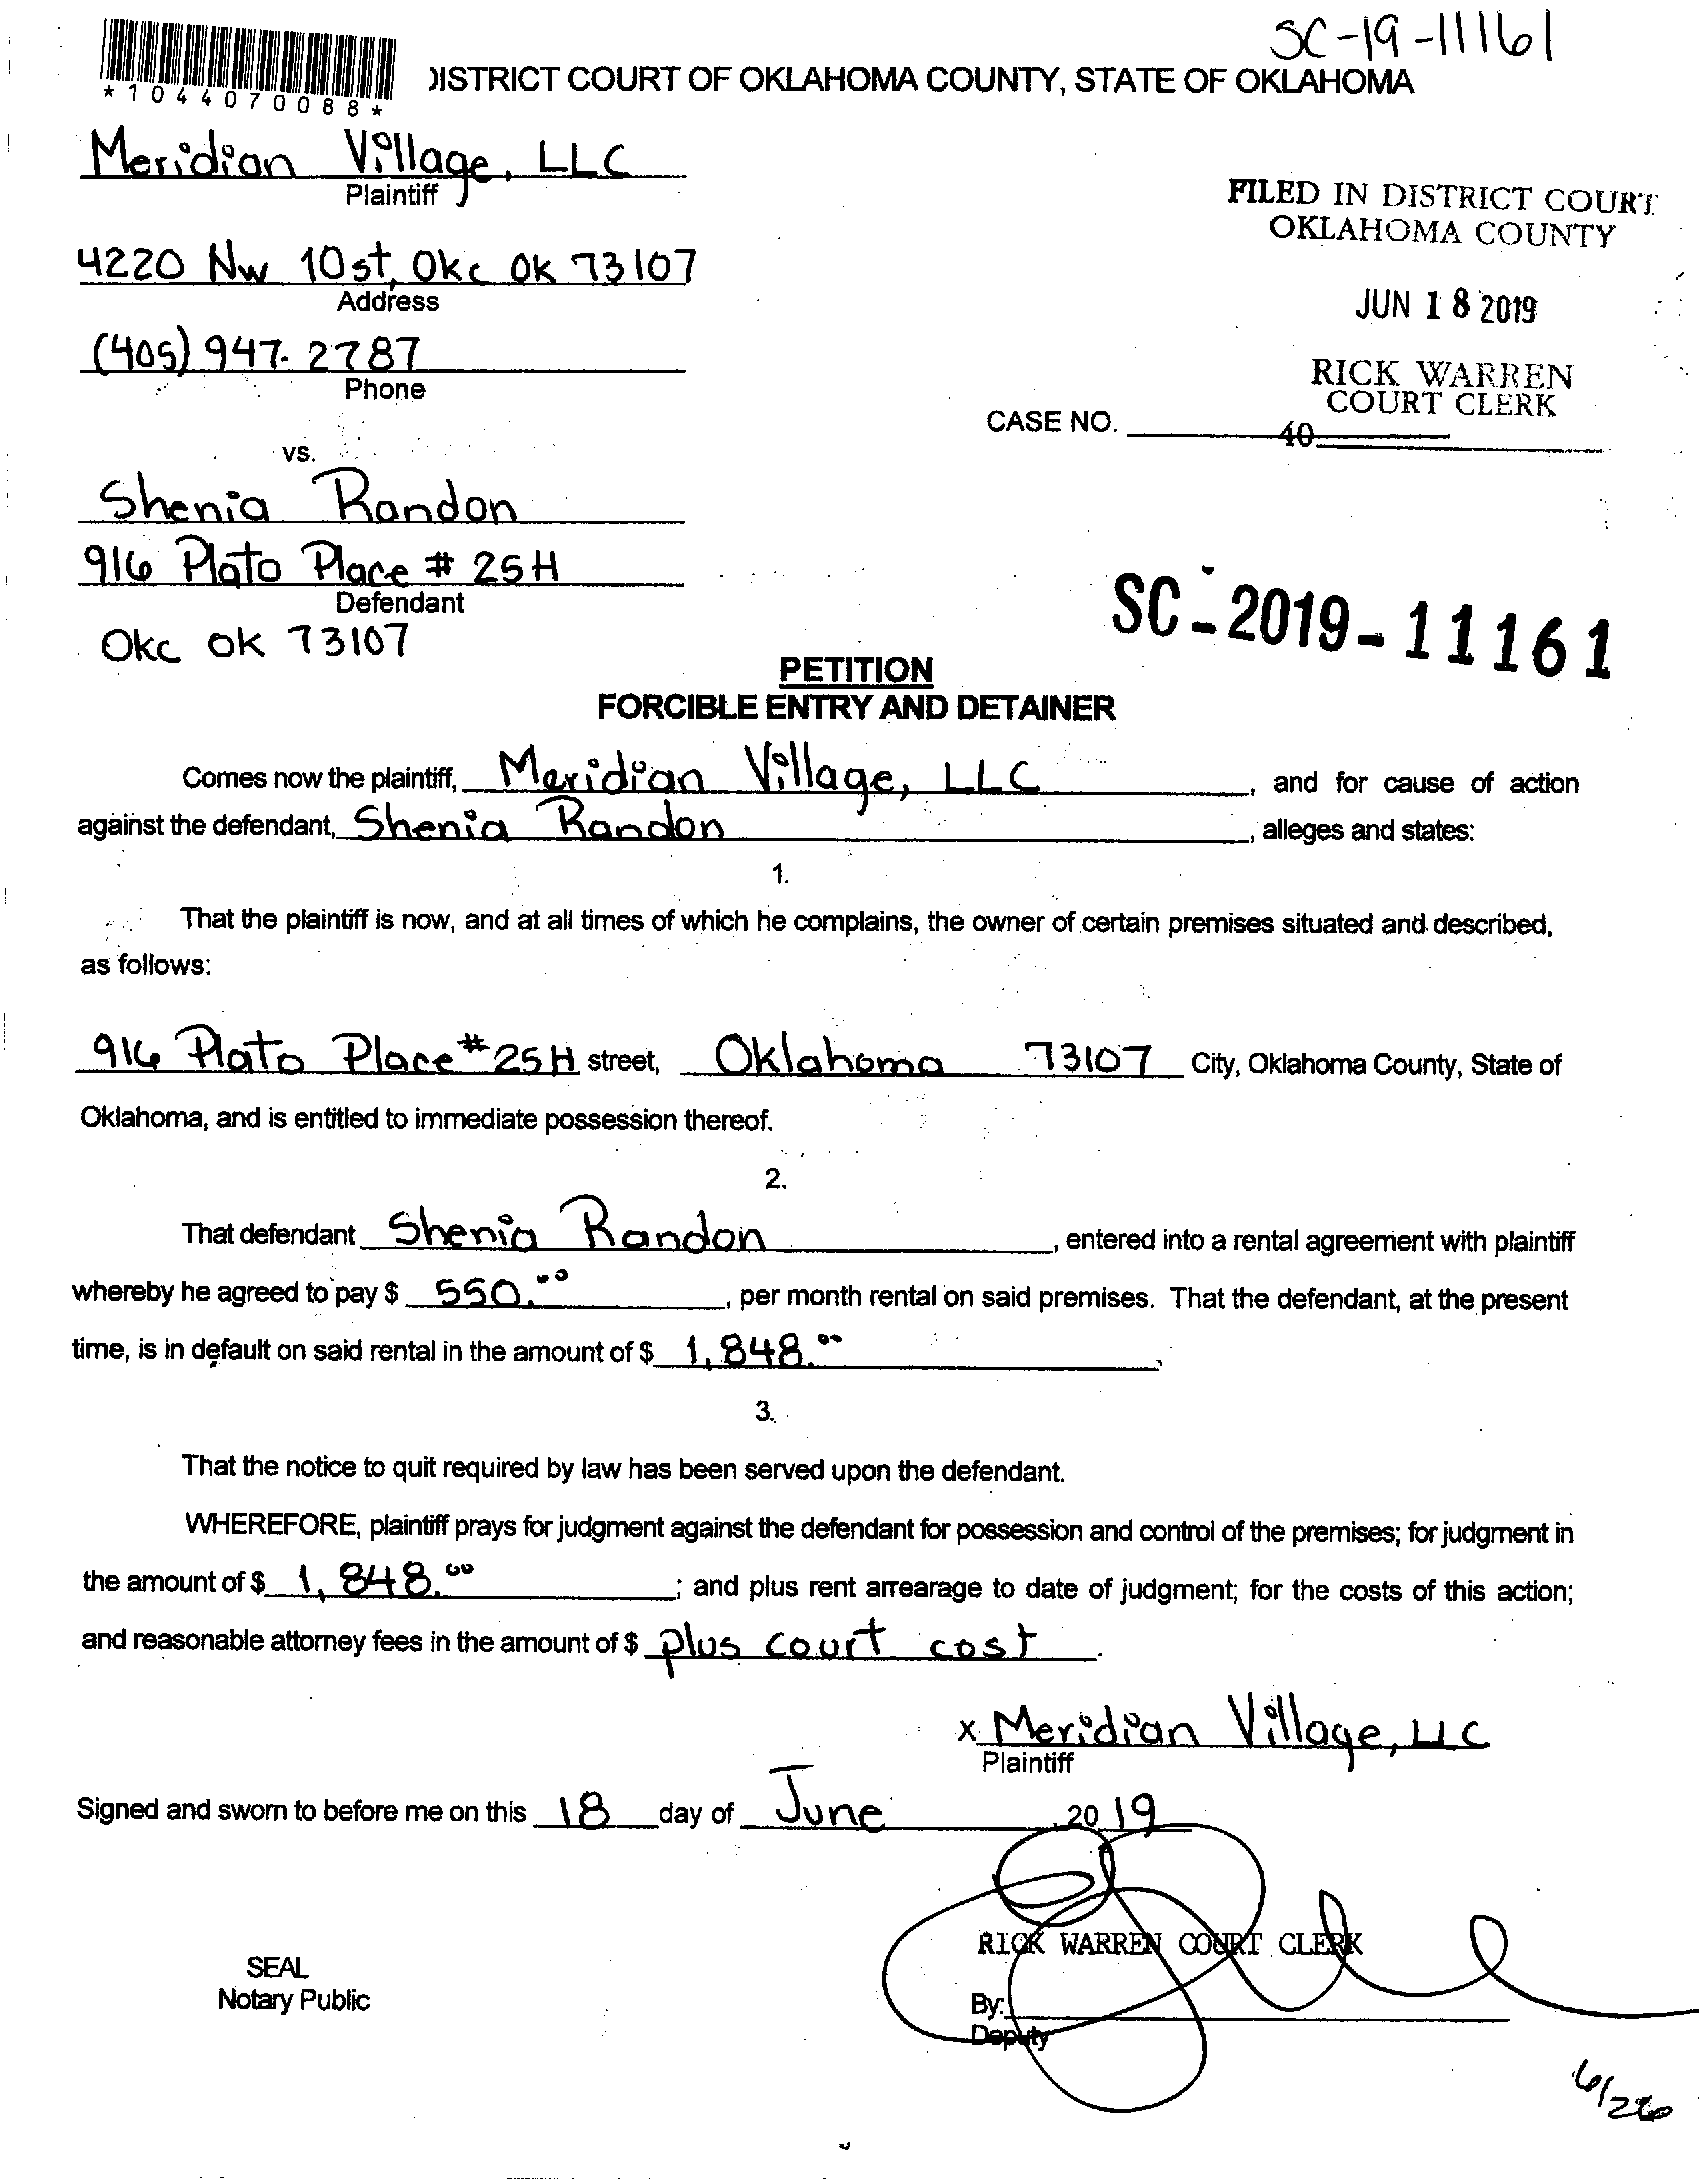 SC-19-11161
*1044070088*
DISTRICT COURT OF OKLAHOMA COUNTY, STATE OF OKLAHOMA
Meridian Village, LLC
Plaintiff
4220 NW 10st, Okc OK 73107
Address
(405) 947-2787
Phone
FILED IN DISTRICT COURT
OKLAHOMA COUNTY
JUN 18 2019
RICK WARREN
COURT CLERK
40
CASE NO.
vs.
Shenia Randon
916 Plato Place # 25H
Defendant
Okc OK 73107
SC-2019-11161
PETITION
FORCIBLE ENTRY AND DETAINER
Comes now the plaintiff, Meridian Village, LLC, and for cause of action
against the defendant, Shenia Randon, alleges and states:
1.
That the plaintiff is now, and at all times of which he complains, the owner of certain premises situated and described,
as follows:
916 Plato Place #25H street, Oklahoma 73107 City, Oklahoma County, State of
Oklahoma, and is entitled to immediate possession thereof.
2.
That defendant Shenia Randon, entered into a rental agreement with plaintiff
whereby he agreed to pay $ 550.00, per month rental on said premises. That the defendant, at the present
time, is in default on said rental in the amount of $ 1,848.00.
3.
That the notice to quit required by law has been served upon the defendant.
WHEREFORE, plaintiff prays for judgment against the defendant for possession and control of the premises; for judgment in
the amount of $ 1,848.00; and plus rent arrearage to date of judgment; for the costs of this action;
and reasonable attorney fees in the amount of $ plus court cost.
x Meridian Village, LLC
Plaintiff
Signed and sworn to before me on this 18 day of June, 2019
RICK WARREN COURT CLERK
SEAL
Notary Public
By:
Deputy
6/26